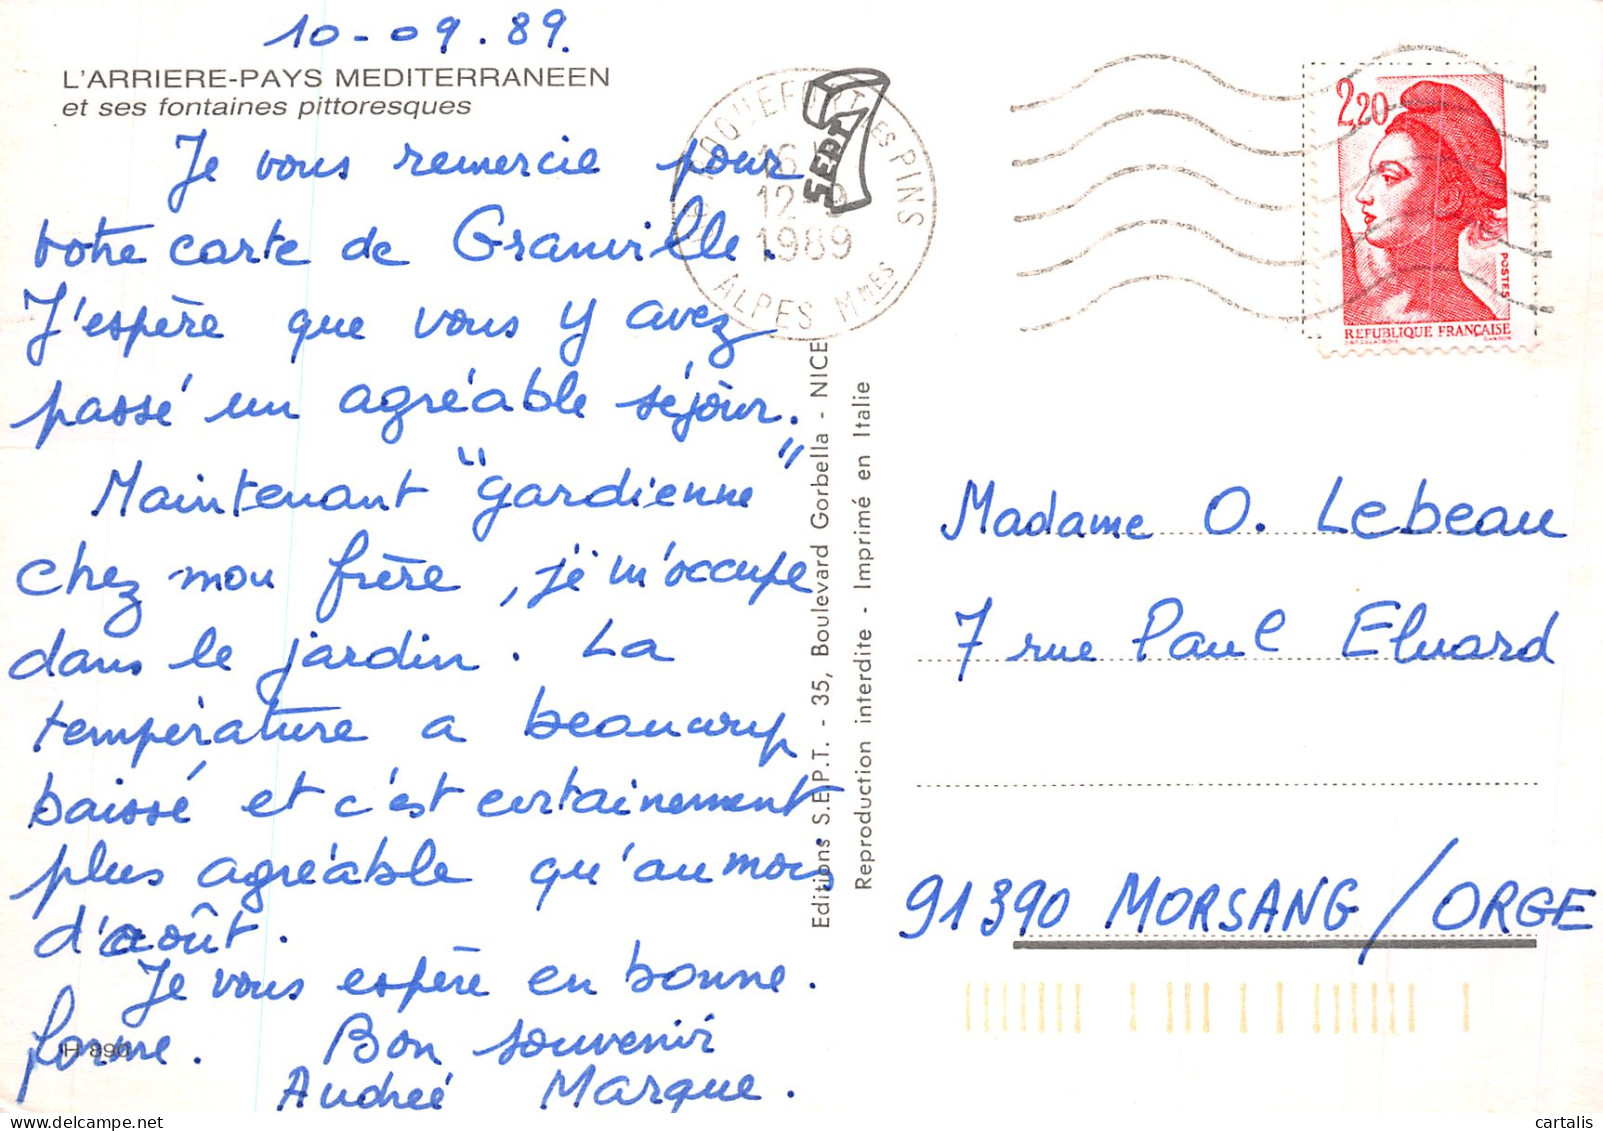 10-09.89.
L'ARRIERE-PAYS MEDITERRANEEN
et ses fontaines pittoresques
Je vous remercie pour
votre carte de Granville.
J'espère que vous y avez
passé un agréable séjour.
Maintenant "gardienne"
chez mon frère, je m'occupe
dans le jardin. La
température a beaucoup
baissé et c'est certainement
plus agréable qu'au mois
d'août.
Je vous espère en bonne.
forme. Bon souvenir
Andrée Marque.
H 890
ROQUEFORT LES PINS
16
12
1989
ALPES MMES
SEPT
Editions S.E.P.T. - 35, Boulevard Gorbella - NICE
Reproduction interdite - Imprimé en Italie
2,20
POSTES
REPUBLIQUE FRANÇAISE
Madame O. Lebeau
7 rue Paul Eluard
91390 MORSANG/ORGE
cartalis